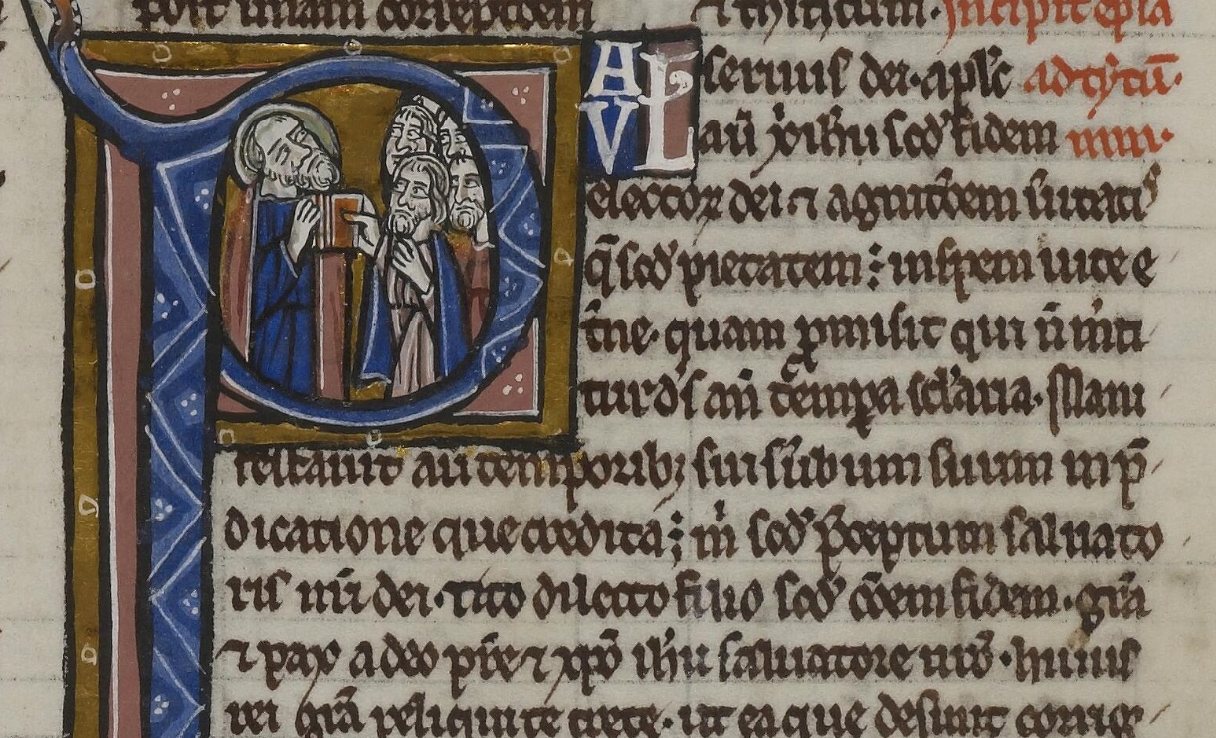 poit unam correptōem ⁊ thiticum. Incipit epła
PAVL servus dei. apłs ad tytū.
aū xp̄i ih̄u scd̄ fidem
elector̄ dei ⁊ agnitōem v̄itatis
q̄ scd̄ pietatem: in spem vite e
t̄ne. quam ꝓmisit qui n̄ m̄ti
tur d's an̄ tēmpa sclaria. Mani
festavit aū temporibꝫ suis v̄bum suum in p̄
dicatione que credita: m̄ scd̄ p̄ceptum salvato
ris nr̄i dei. Tito dilecto filio scd̄ cōem fidem. gr̄a
⁊ pax a deo pr̄e ⁊ xp̄o ih̄u salvatore nr̄o. huius
rei gr̄a reliqui te crete. ut ea que desunt corrig